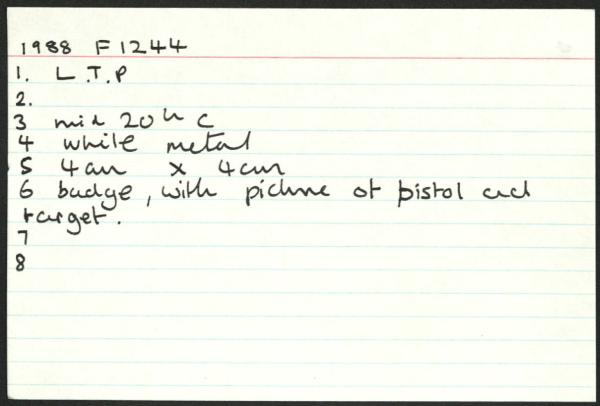 1988 F1244
1. L.T.P
2.
3 mid 20th C
4 white metal
5 4cm x 4cm
6 badge, with picture of pistol and
target.
7
8